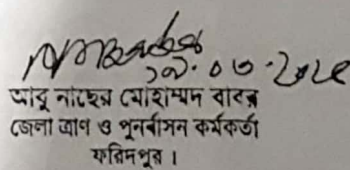 আবু নাছের মোহাম্মদ বাবর
জেলা ত্রাণ ও পুনর্বাসন কর্মকর্তা
ফরিদপুর ।